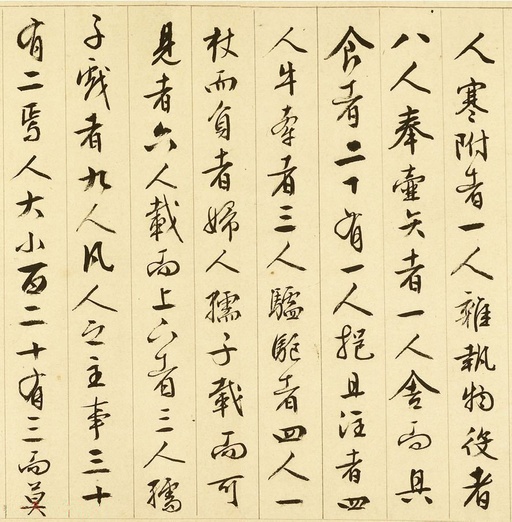 人寒附者一人雜執物役者
八人奉壺矢者一人舍而具
食者二十有一人挹且注者四
人牛牽者三人驢駈者四人一
杖而負者婦人孺子載而可
見者六人載而上下者三人孺
子戲者九人凡人之主事三十
有二焉人大小百二十有三而莫